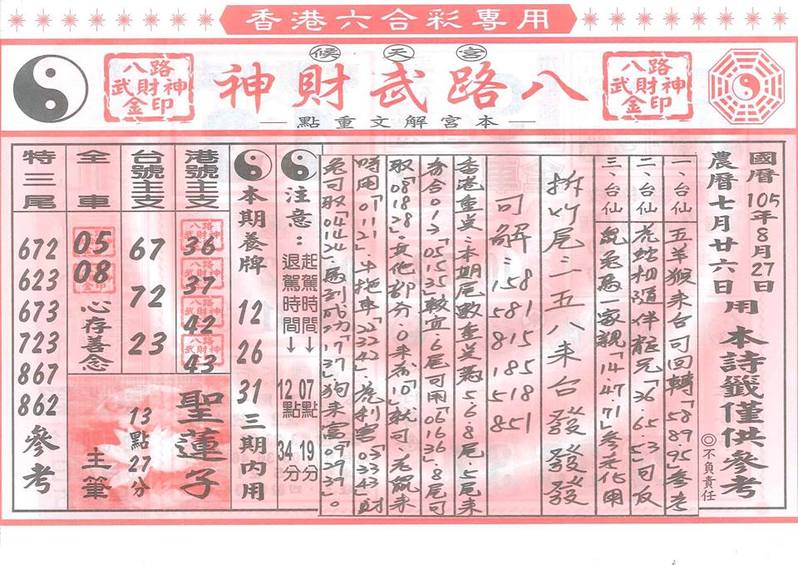 香港六合彩專用
候天宮
八路武財神
八路
武財神
金印
八路
武財神
金印
本宮解文重點
國曆105年8月27日
農曆七月廿六日
用本詩籤僅供參考
◎不負責任
一、台仙 五羊猴來台可回轉「58 89 95」參考
二、台仙 虎蛇相隨伴龍元「36.65.53」可反
三、台仙 鼠兔為一家親「14 47 71」參考化用
拆竹尾二五八來台發發發
可解:158 581 815 185 518 851
香港重点:本期尾數重点為5.6.8尾.5尾來
香合013「05 15 35」較宜.6尾可用「06 16 36」.8尾可
取「08 18 28」.其他部分.0來為「10」就可.老鼠來
時用「01 12」.牛拖車「22 32 42」.虎利害「05 33 43」財
兔可取「04 14 24」.馬到成功「17 37」狗來富「09 27 37」。
注意:
起駕時間→07點19分
退駕時間→12點34分
本期養牌 12 26 31 三期內用
港號主支
36
37
42
43
台號主支
67
72
23
全車
05
08
心存善念
特三尾
672
623
673
723
867
862
參考
聖蓮子
13點27分
主筆